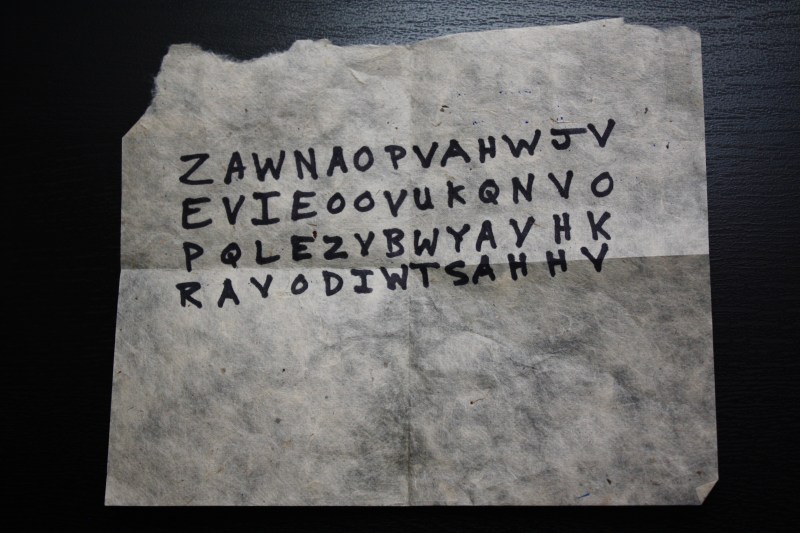 ZAWNAOPVAHWJV
EVIEOOVUKQNVO
PQLEZVBWYAVHK
RAVODIWTSAHHV